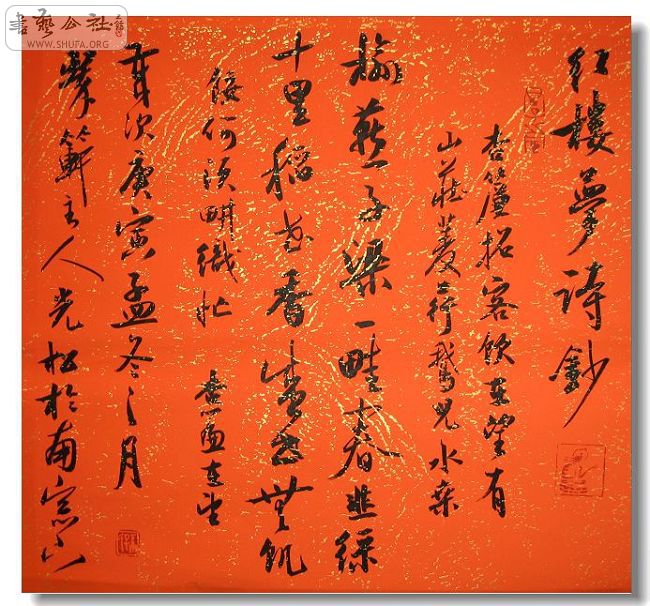 書藝公社
WWW.SHUFA.ORG
紅樓夢詩鈔
杏簾招客飲在望有
山莊菱荇鵝兒水桑
榆燕子梁一畦春韭綠
十里稻花香盛世無飢
餒何須耕織忙
在望
歲次庚寅孟冬之月
軒主人光松於南